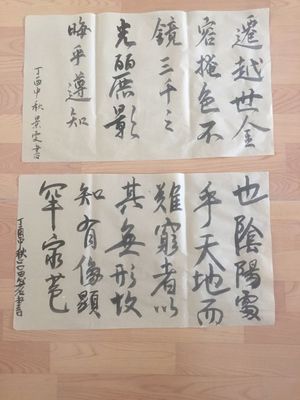 遷越世金
容掩色不
鏡三千之
光丽影
晦乎遵知
丁酉中秋書
也陰陽處
乎天地而
難窮者以
其無形故
知有像顯
罕窮苞
丁酉中秋書